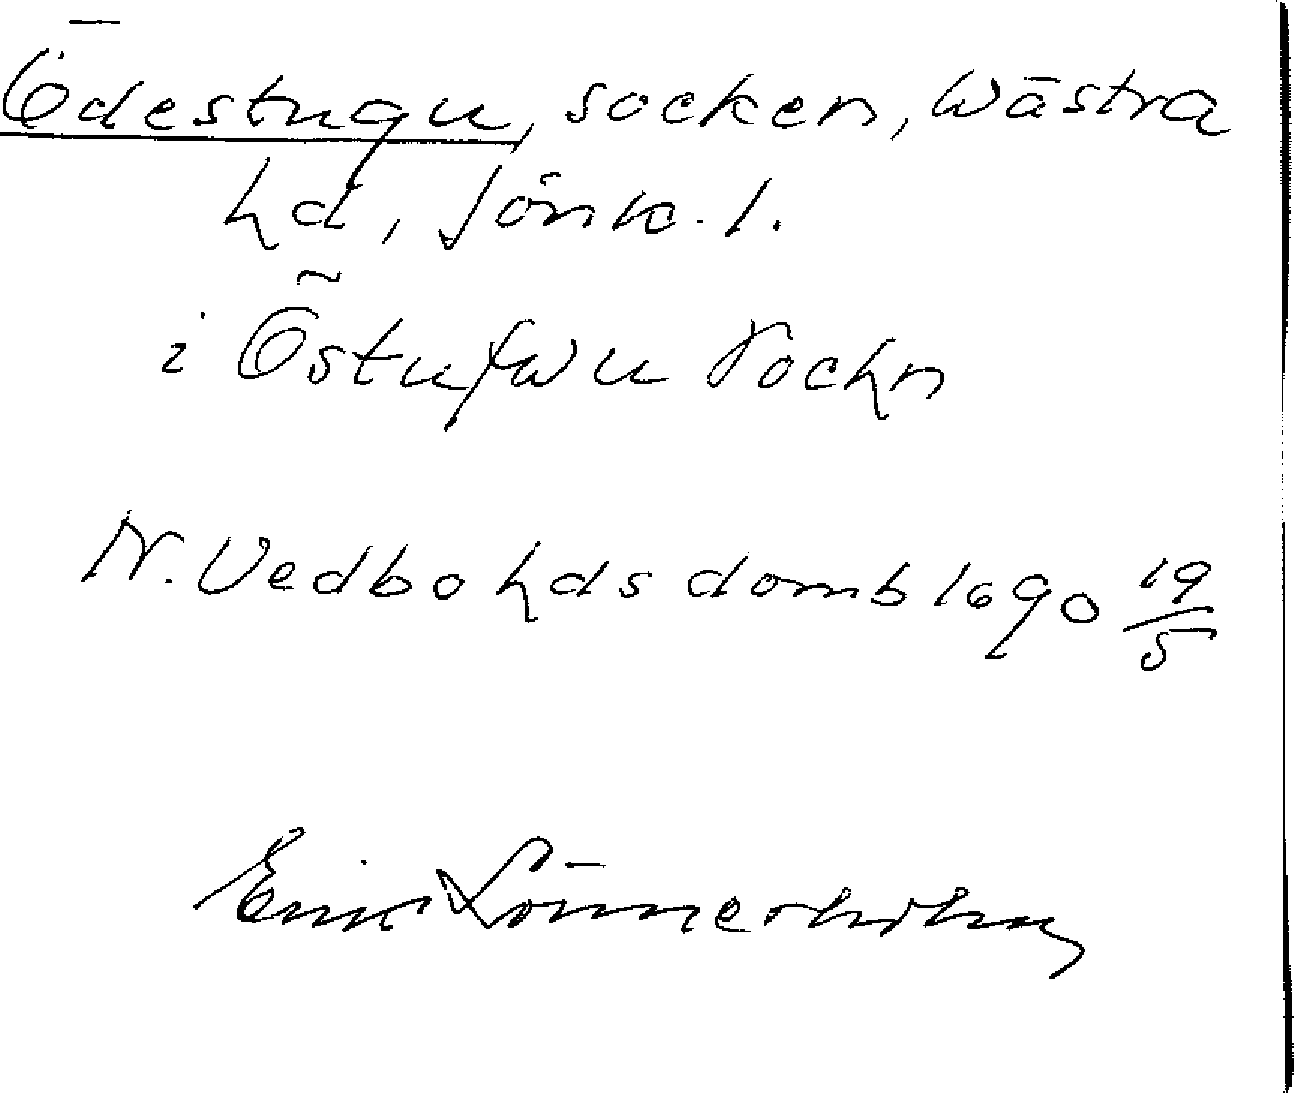 Ödestugu, socken, Wästra
hd, Jönk. l.
i Östufwu Sochn
N. Vedbo hds domb 1690 19/5
Eric Lönnerholm